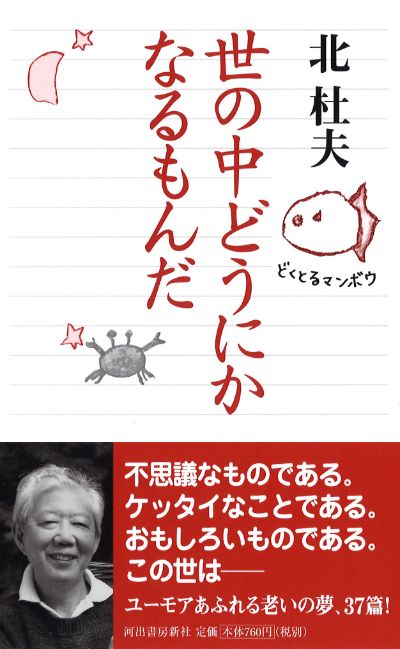 北 杜夫
世の中どうにか
なるもんだ
どくとるマンボウ
不思議なものである。
ケッタイなことである。
おもしろいものである。
この世は──
ユーモアあふれる老いの夢、37篇!
河出書房新社 定価 本体760円(税別)